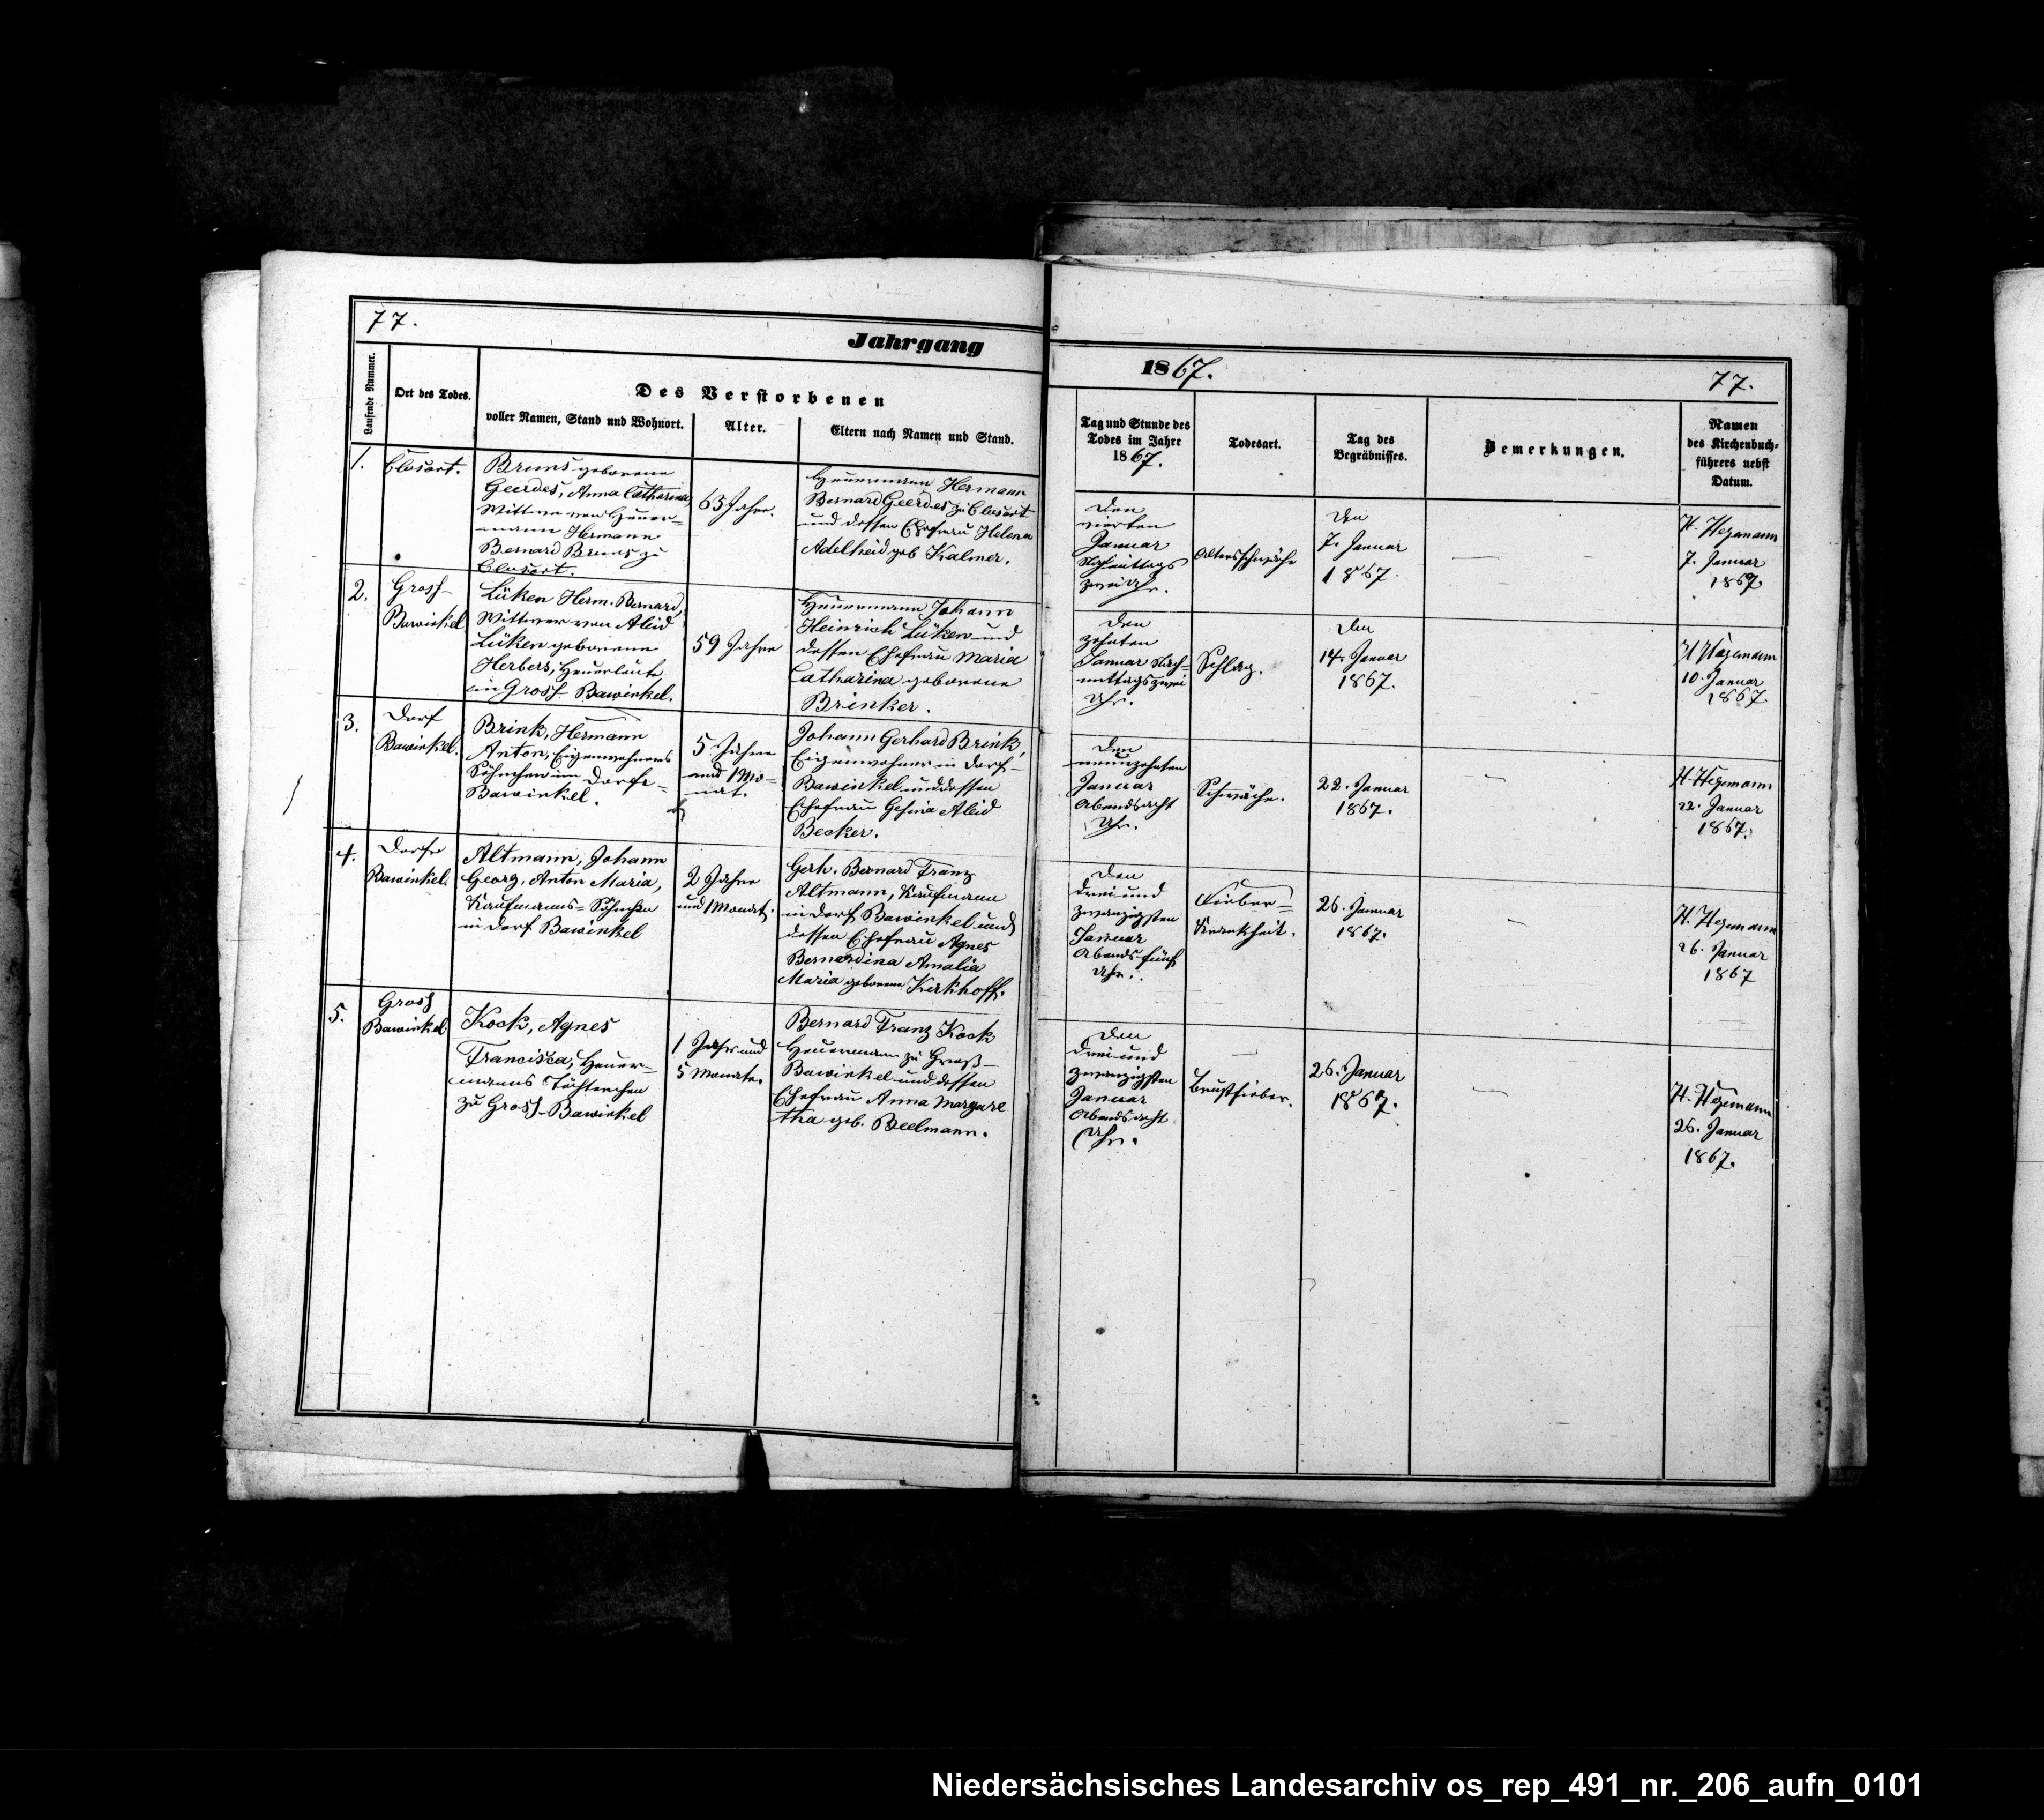 77.
Jahrgang
1867.
77.
Laufende Nummer.
Ort des Todes.
Des Verstorbenen
voller Namen, Stand und Wohnort.
Alter.
Eltern nach Namen und Stand.
Tag und Stunde des
Todes im Jahre
1867.
Todesart.
Tag des
Begräbnisses.
Bemerkungen.
Namen
des Kirchenbuch-
führers nebst
Datum.
1.
Clusort.
Bruns geborene
Geerdes, Anna Catharina,
Wittwe von Heuer-
mann Hermann
Bernard Bruns zu
Clusort.
65 Jahre.
Heuermann Hermann
Bernard Geerdes zu Clusort
und dessen Ehefrau Helena
Adelheid geb Kalmer.
Den
vierten
Januar
Nachmittags
zwei Uhr.
Altersschwäche
Den
7. Januar
1867.
H. Hegemann
7. Januar
1867.
2.
Gross-
Bawinkel
Lüken Herm. Bernard,
Wittwer von Aleid
Lüken geborene
Herbers, Heuerleute
in Gross-Bawinkel.
59 Jahre
Heuermann Johann
Heinrich Lüken und
dessen Ehefrau Maria
Catharina geborene
Brinker.
Den
zehnten
Januar Nach-
mittags zwei
Uhr.
Schlag.
Den
14. Januar
1867.
H Hegemann
10. Januar
1867
3.
Dorf
Bawinkel.
Brink, Hermann
Anton, Eigenwohners
Söhnchen im Dorfe-
Bawinkel.
5 Jahre
und 1 Mo-
nat.
Johann Gerhard Brink,
Eigenwohner in Dorf-
Bawinkel und dessen
Ehefrau Gesina Aleid
Becker.
Den
neunzehnten
Januar
Abends acht
Uhr.
Schwäche.
22. Januar
1867.
H Hegemann
22. Januar
1867.
4.
Dorfe
Bawinkel.
Altmann, Johann
Georg, Anton Maria,
Kaufmanns-Söhnchen
in Dorf Bawinkel
2 Jahre
und 1 Monat.
Gerh. Bernard Franz
Altmann, Kaufmann
in Dorf Bawinkel und
dessen Ehefrau Agnes
Bernardina Amalia
Maria geborene Kerkhoff.
Den
drei und
zwanzigsten
Januar
Abends fünf
Uhr.
Fieber-
Krankheit.
26. Januar
1867.
H. Hegemann
26. Januar
1867
5.
Gross
Bawinkel
Kock, Agnes
Francisca, Heuer-
manns Töchterchen
zu Gross-Bawinkel
1 Jahr und
5 Monate.
Bernard Franz Kock
Heuermann zu Groß-
Bawinkel und dessen
Ehefrau Anna Margare
tha geb. Beelmann.
Den
drei und
zwanzigsten
Januar
Abends acht
Uhr.
Brustfieber.
26. Januar
1867.
H. Hegemann
26. Januar
1867.
Niedersächsisches Landesarchiv os_rep_491_nr._206_aufn_0101